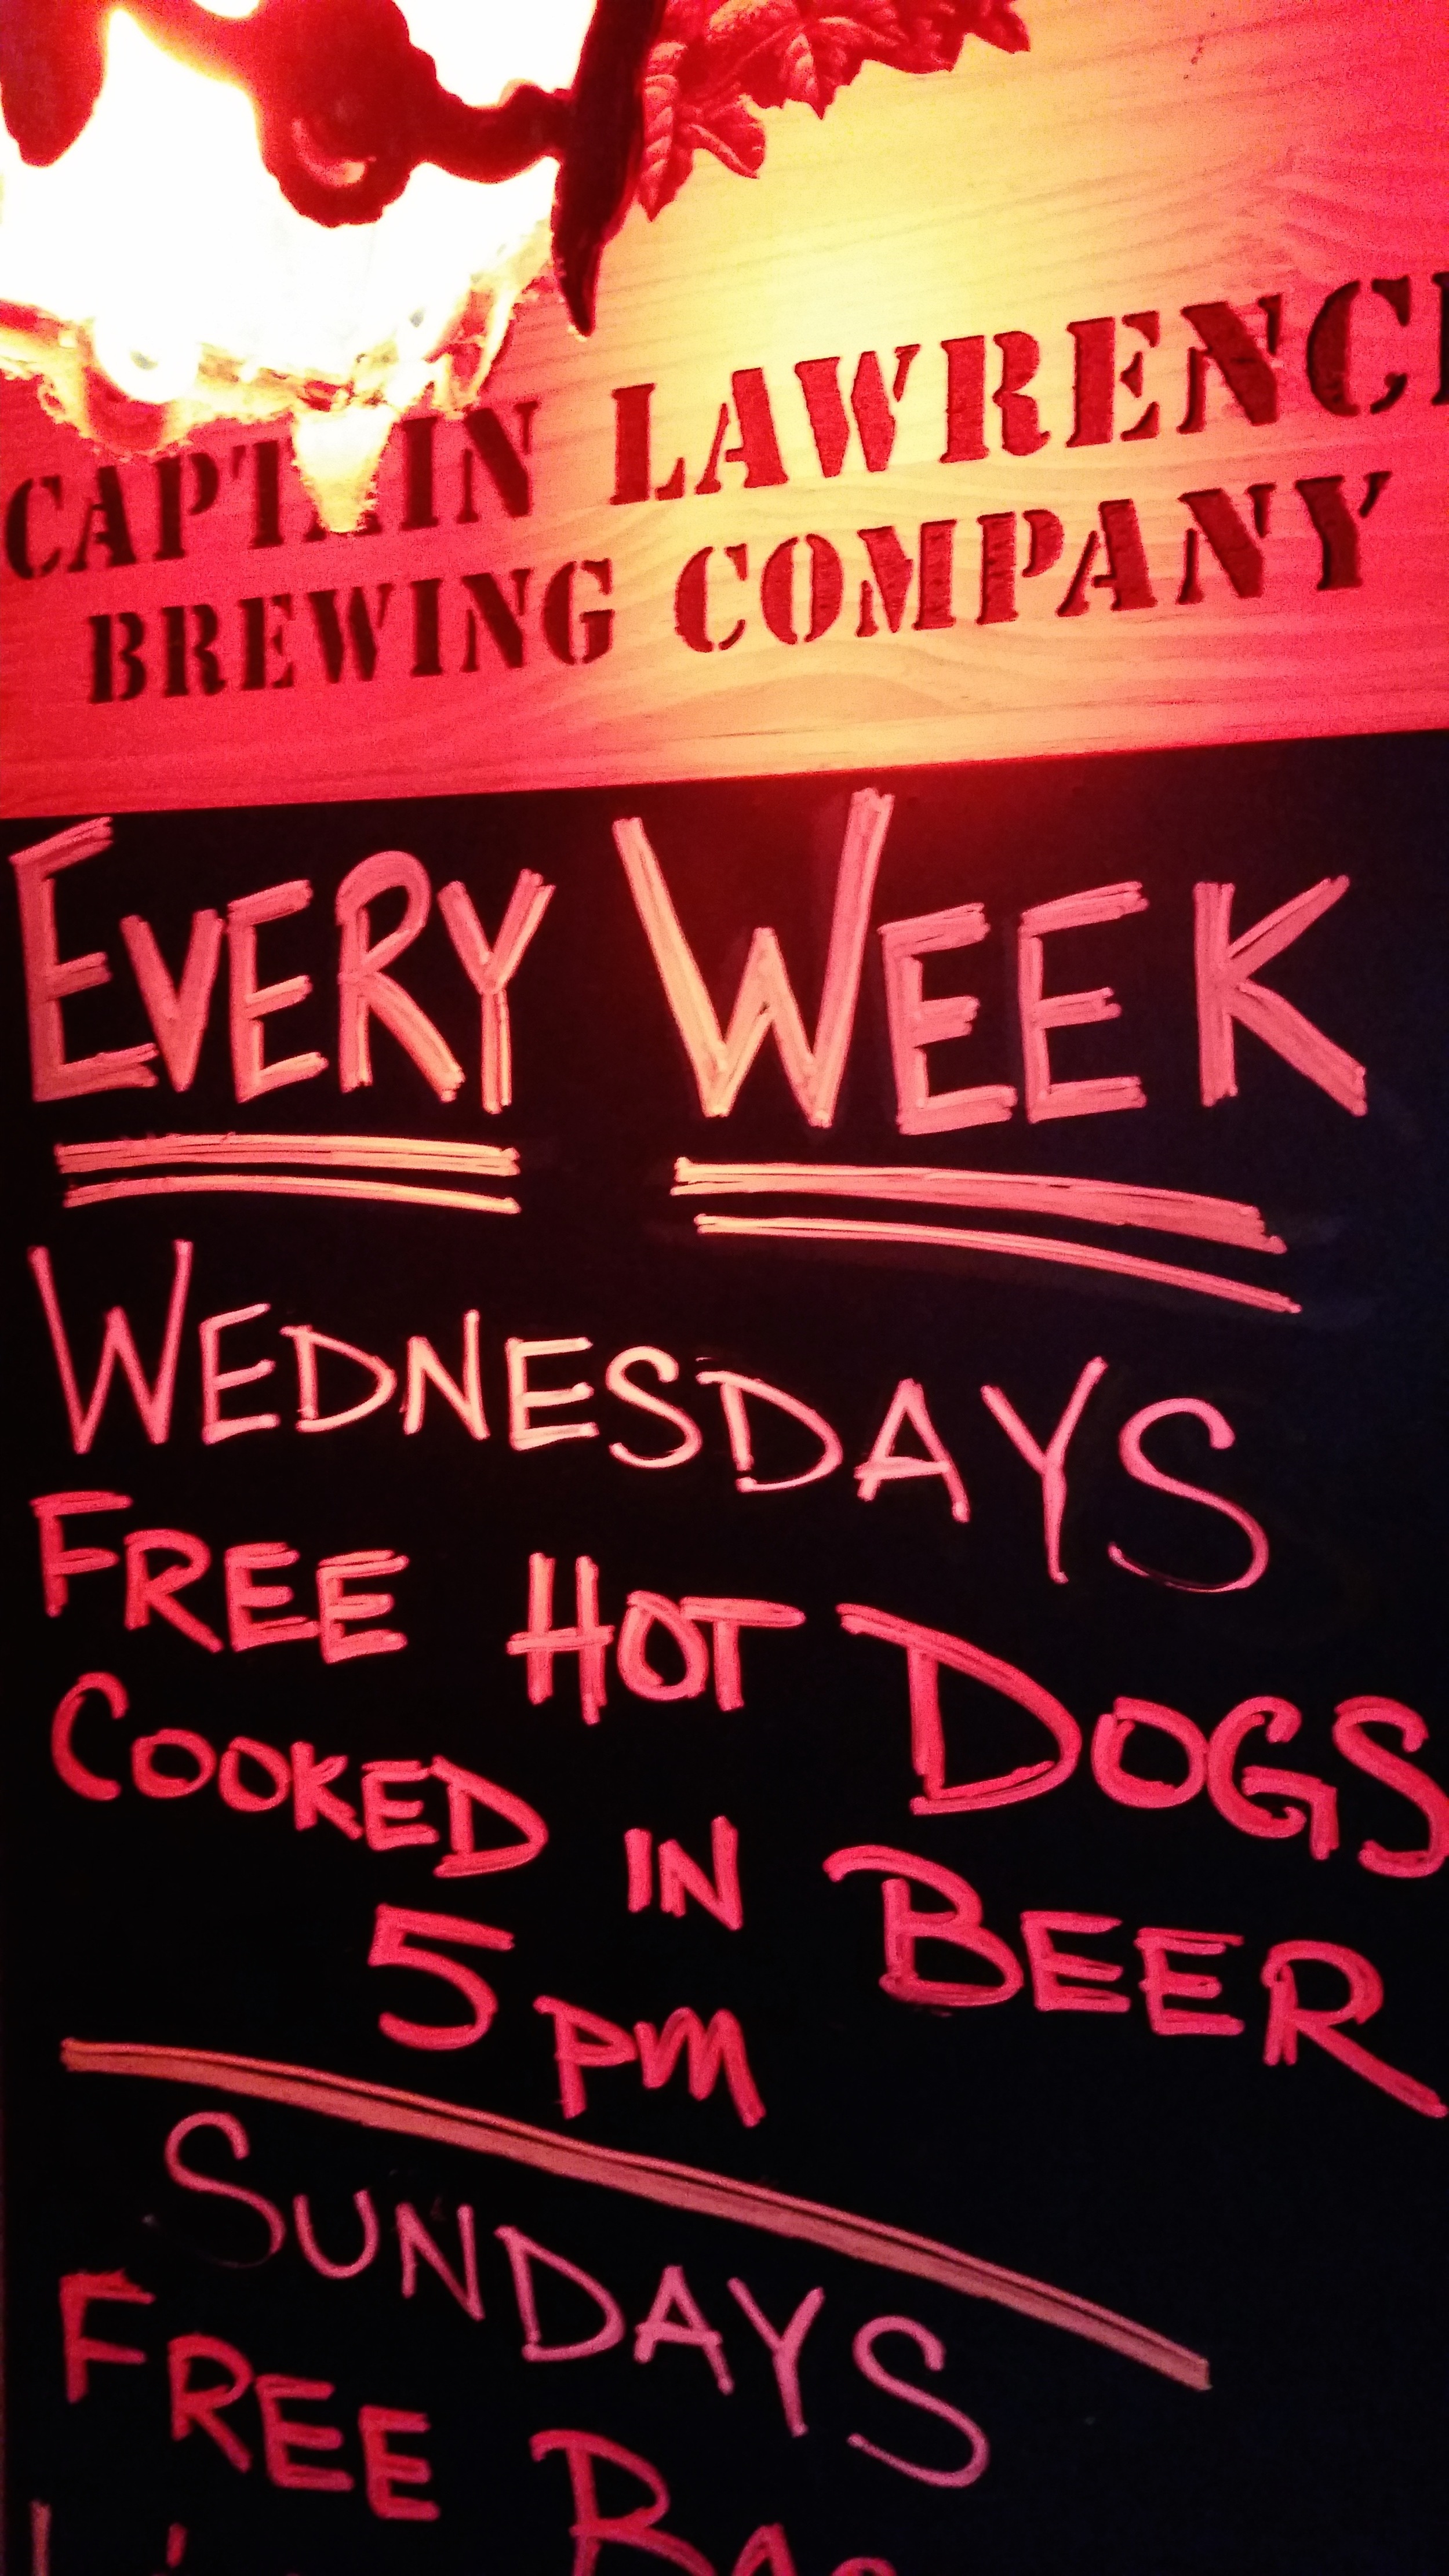 CAPTAIN LAWRENCE
BREWING COMPANY
EVERY WEEK
WEDNESDAYS
FREE HOT DOGS
COOKED IN BEER
5 PM
SUNDAYS
FREE